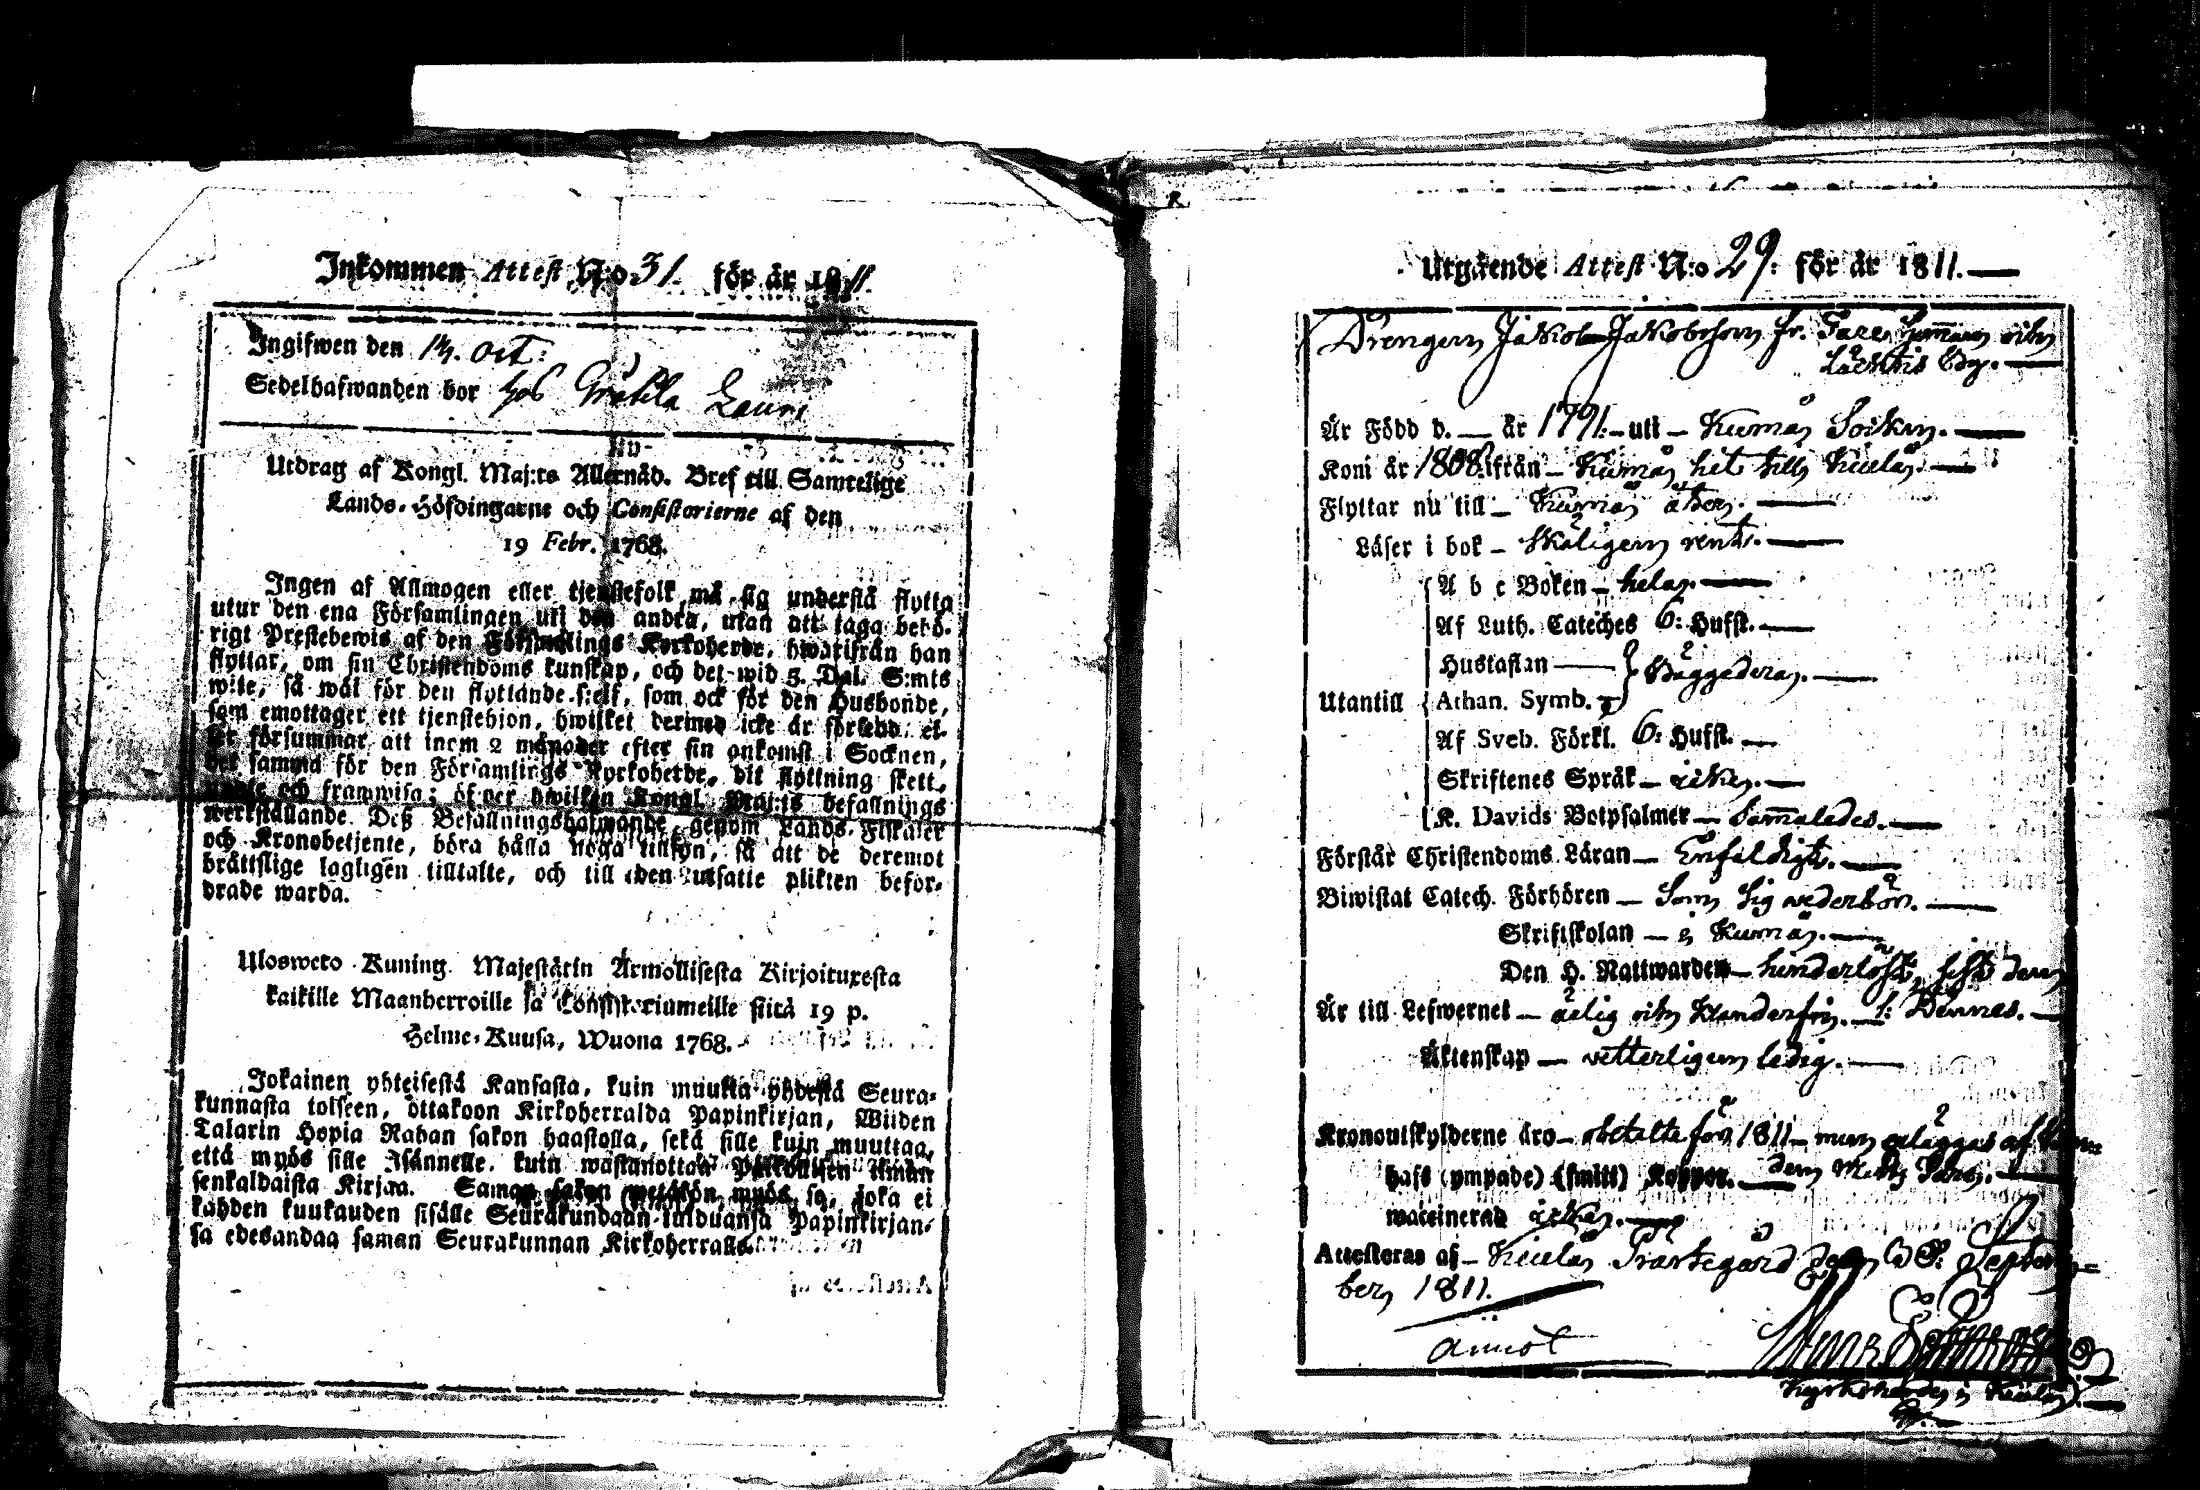 Inkommen Attest N:o 31. för år 1811.
Ingifwen den 14. Oct:
Sedelhafwanden bor hos Gråbla Lauri
Utdrag af Kongl. Maj:ts Allernåd. Bref till Samtelige
Lands-Höfdingarne och Consistorierne af den
19 Febr. 1768.
Ingen af Allmogen eller tjenstefolk må sig understå flytta
utur den ena Församlingen uti den andra, utan att taga behö-
rigt Prestebewis af den Församlings Kyrkoherde, hwarifrån han
flyttar, om sin Christendoms kunskap, och det wid 5. Dal. S:mts
wite, så wäl för den flyttande sjelf, som ock för den Husbonde,
som emottager ett tjenstehjon, hwilket dermed icke är försedd, el-
ler försummar att inom 2 månader efter sin ankomst i Socknen,
det samma för den Församlings Kyrkoherde, dit flyttning skett,
och framwisa; öfwer hwilken Kongl. Maj:ts befallnings
werkställande Deß Befallningshafwande, genom Lands-Fiskaler
och Kronobetjente, böra hålla noga tillsyn, så att de deremot
bråttslige lagligen tilltalte, och till den utsatte plikten befor-
drade warda.
Uloswcto Kuning. Majestätin Armollisesta Kirjoituxesta
kaikille Maanherroille ja Consistoriumeille siitä 19 p.
Helme-Kuusa, Wuona 1768.
Jokainen yhteisestä Kansasta, kuin muukta yhdestä Seura-
kunnasta toiseen, ottakoon Kirkoherralda Papinkirjan, Wiiden
Talarin Hopia Rahan sakon haastolla, sekä sille kuin muuttaa,
että myös sille Isännelle, kuin wastanottaa Palkollisen ilman
senkaldaista Kirjaa. Saman sakon wetäkön myös se, joka ei
kahden kuukauden sisälle Seurakundaan tulduansa Papinkirjan-
sa edesandaa saman Seurakunnan Kirkoherralle.
Utgående Attest N:o 29: för år 1811.
Drengen Jakob Jakobsson fr. och
By.
Är Född d. — år 1791. uti — Kumå Sockn.
Kom år 1808. ifrån — Kumå hit till Kiulå.
Flyttar nu till — Kumå åter.
Läser i bok — Skäligen rent.
A b c Boken — hela.
Af Luth. Cateches 6: Hufst.
Hustaflan — Bäggedera.
Utantill Athan. Symb.
Af Sveb. Förkl. 6: Hufst.
Skriftenes Språk —
K. Davids Botpsalmer — Sam̅aledes.
Förstår Christendoms Läran — Enfaldigt.
Biwistat Catech. Förhören — Som sig wederbör.
Skriftskolan — i Kumå.
Den H. Nattwarden — hinderlöst, sist den
Är till Lefwernet — ärlig och klanderfri. 1: Dennes.
Äktenskap — vetterligen ledig.
Kronoutskylderne äro — betalte för 1811 men af
haft (ympade) (smitt) Koppor.
waccinerad
Attesteras af — Kiulå Prästegård den Septem-
ber 1811.
Kyrkoherde i Kiulo.